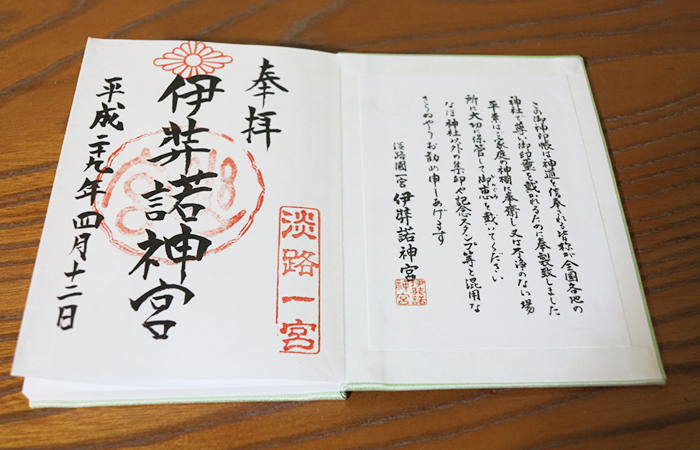 この御神印帳は神道を信奉される皆様が全国各地の
神社で尊い御印璽を戴かれるために奉製致しました
平素はご家庭の神棚に奉齋し又は不浄のない場
所に大切に保管して御恵を戴いてください
なほ神社以外の尊印や記念スタンプ等と混用な
さらぬやうお勧め申しあげます
淡路國一宮 伊弉諾神宮
伊弉諾
神宮
奉拝
淡路一宮
伊弉諾神宮
平成二十九年四月十二日